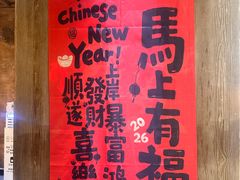 Chinese
New
Year!
馬上有福
2026
上岸暴富鴻
發財喜樂
順遂